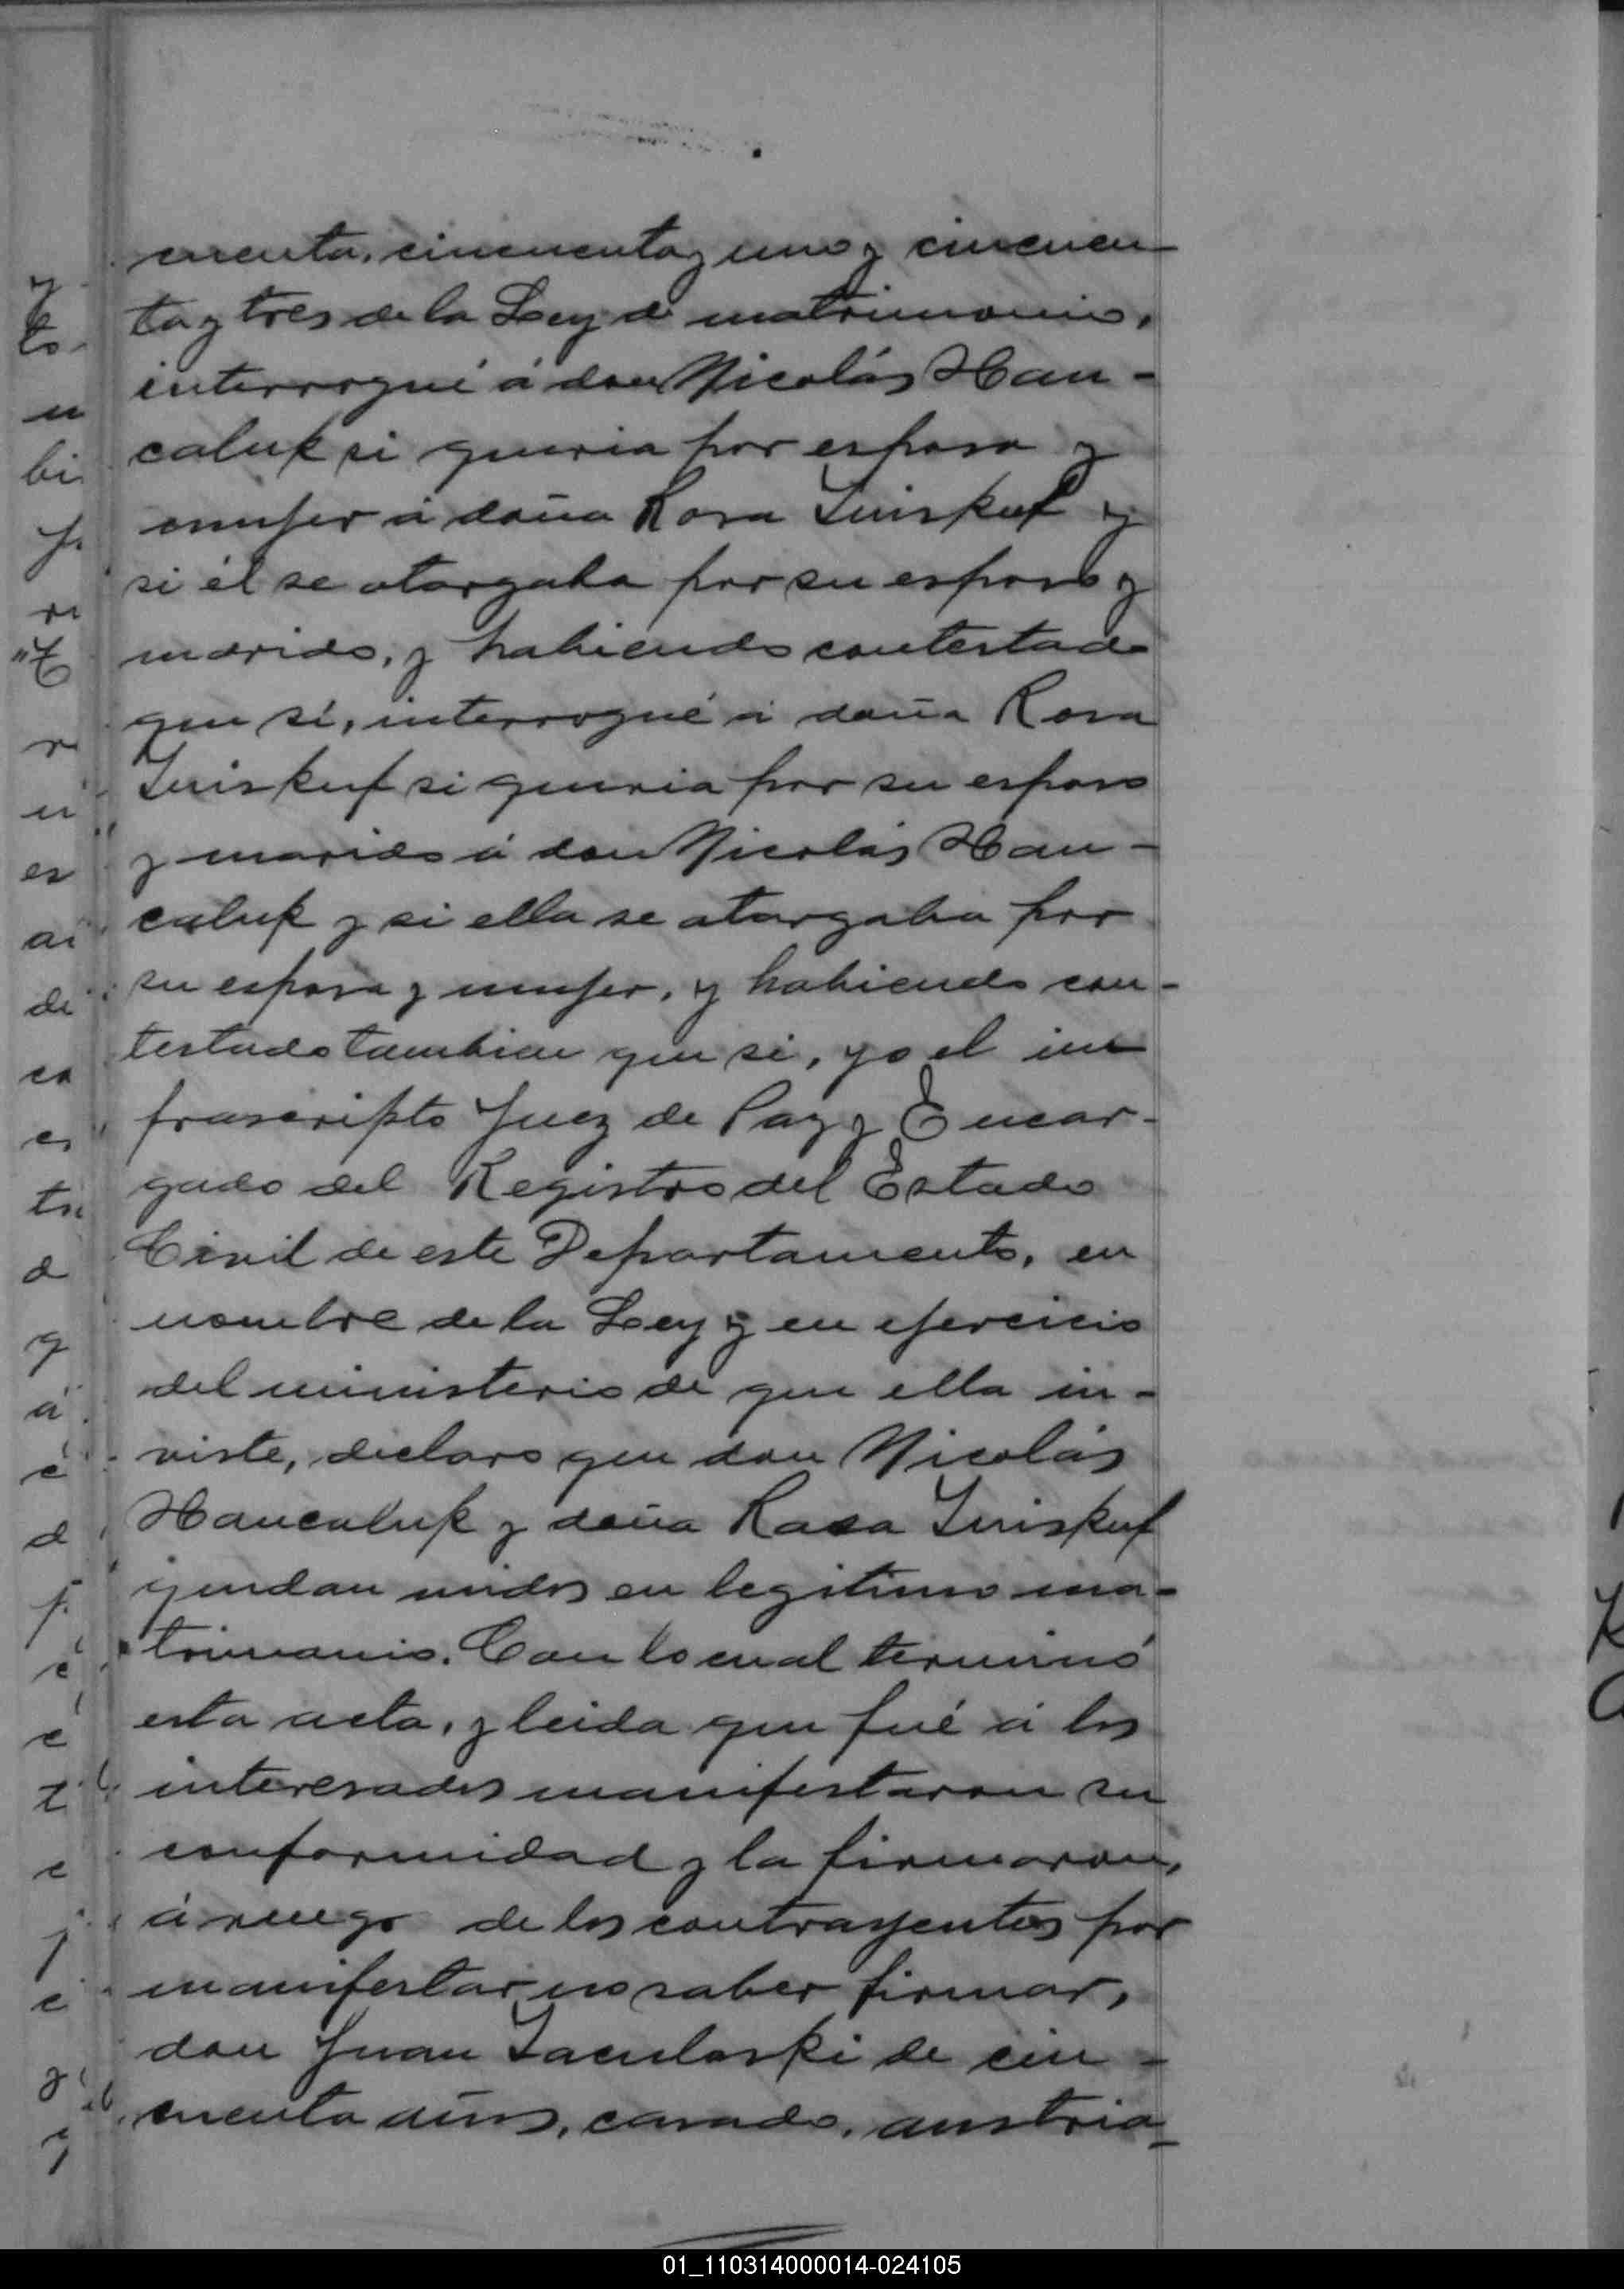 cuenta, cincuenta y uno y cincuen
ta y tres de la Ley de matrimonio,
interrogué á don Nicolás Han-
caluk si queria por esposa y
mujer á doña Rosa Juiskuf y
si él se otorgaba por su esposo y
marido, y habiendo contestado
que sí, interrogué á doña Rosa
Juiskuf si queria por su esposo
y marido á don Nicolás Han-
caluk y si ella se otorgaba por
su esposa y mujer, y habiendo con-
testado tambien que si, yo el in
frascripto Juez de Paz y Encar-
gado del Registro del Estado
Civil de este Departamento, en
nombre de la Ley y en ejercicio
del ministerio de que ella in-
viste, declaro que don Nicolás
Hancaluk y doña Rosa Juiskuf
quedan unidos en legitimo ma-
trimonio. Con lo cual terminó
esta acta, y leida que fué á los
interesados manifestaron su
conformidad y la firmaron,
á ruego de los contrayentes por
manifestar no saber firmar,
don Juan Jaculoski de cin-
cuenta años, casado, austria-
01_110314000014-024105